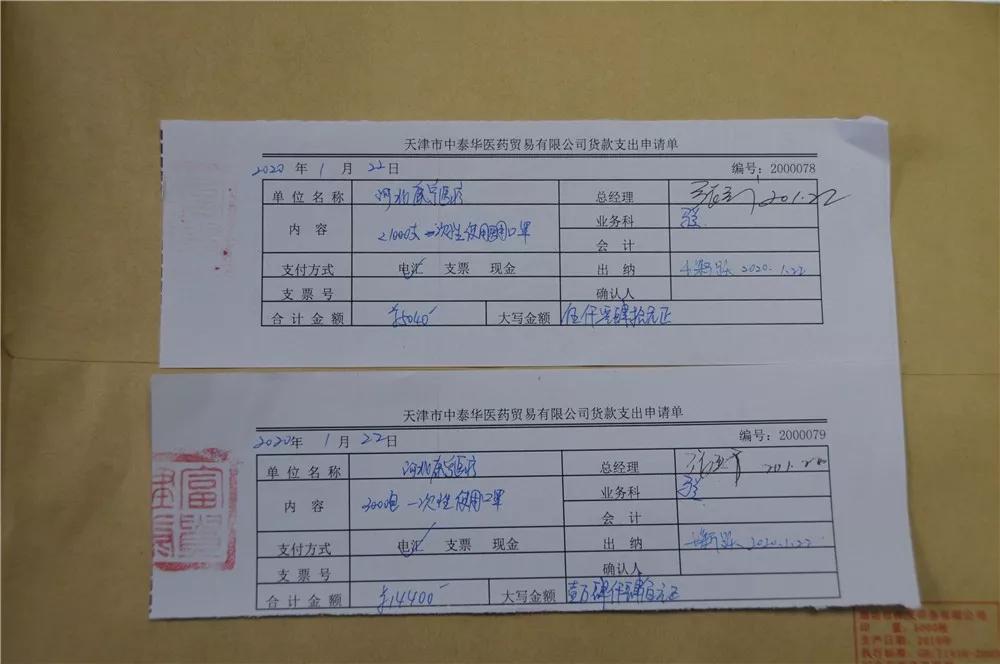 天津市中泰华医药贸易有限公司货款支出申请单
2020 年 1 月 22 日 编号：2000078
单位名称 河北 医疗 总经理
内 容 21000支 一次性使用 口罩 业务科
会 计
支付方式 电汇 支票 现金 出 纳 2020.1.22
支 票 号 确认人
合计金额 ¥5040 大写金额 伍仟零肆拾元正
天津市中泰华医药贸易有限公司货款支出申请单
2020 年 1 月 22 日 编号：2000079
单位名称 河北 医疗 总经理
内 容 一次性使用口罩 业务科
会 计
支付方式 电汇 支票 现金 出 纳 2020.1.22
支 票 号 确认人
合计金额 ¥14400 大写金额 壹万肆仟肆百元正
富